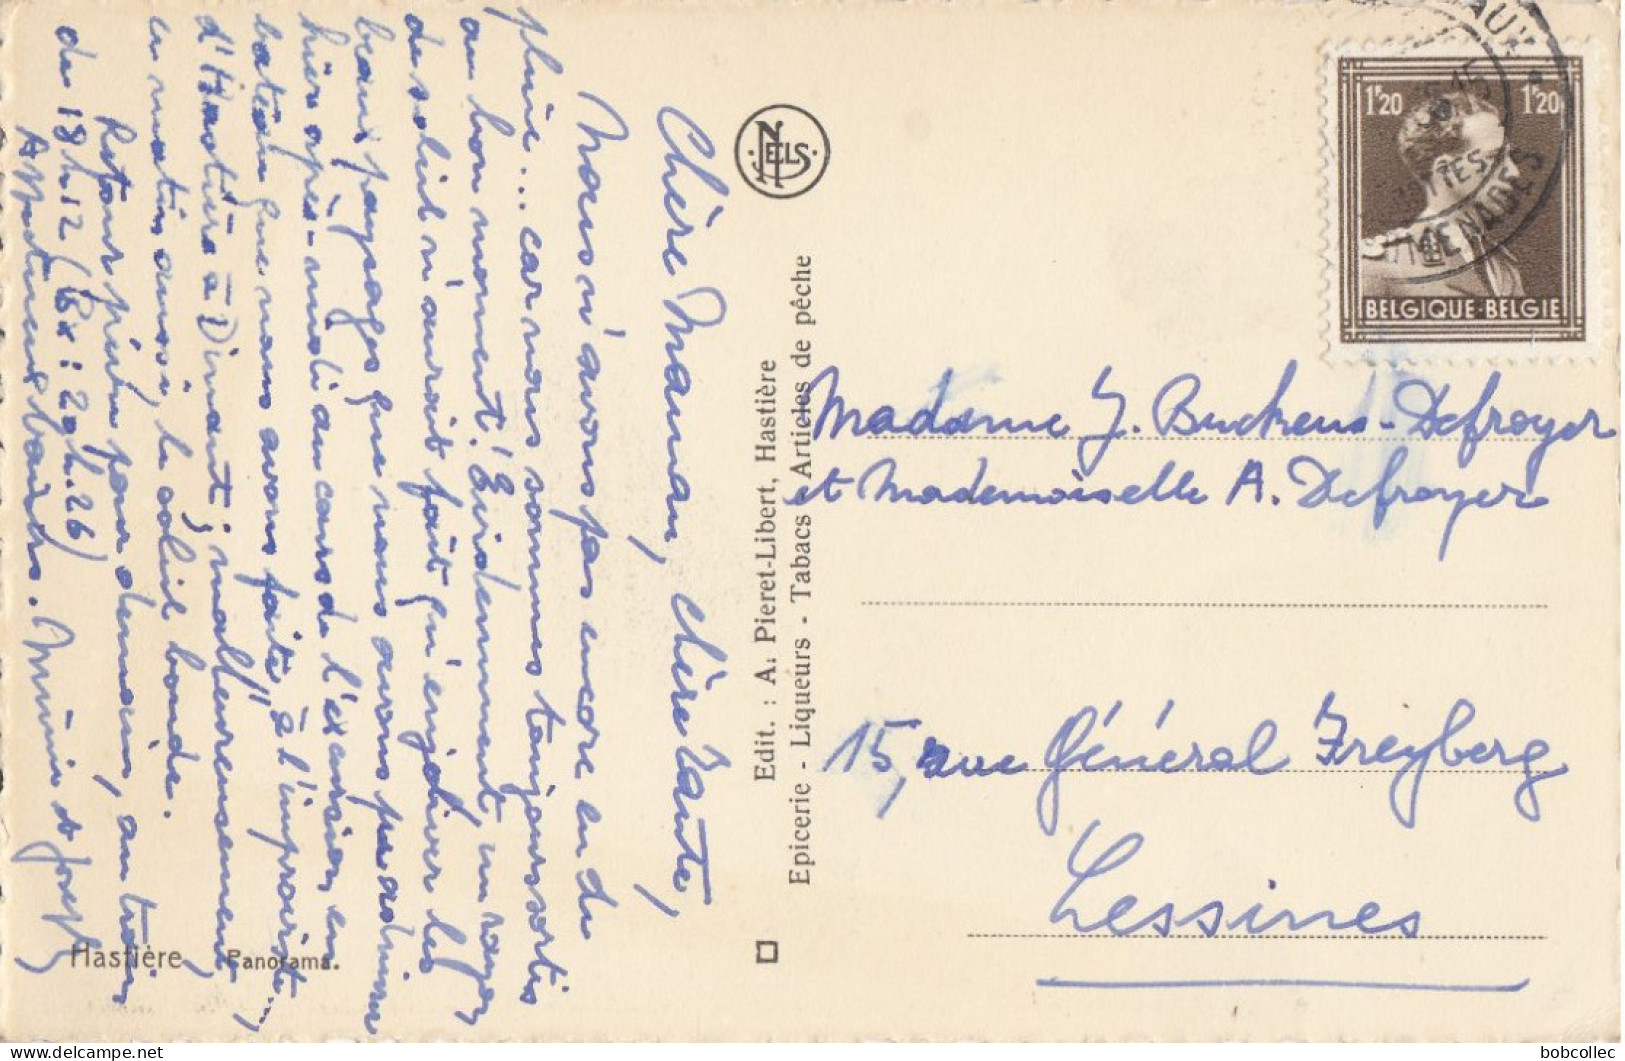 Chère Maman, chère Tante,
Nous n'avons pas encore eu de
pluie... car nous sommes toujours sortis
au bon moment! Évidemment, un rayon
de soleil n'aurait fait qu'enjoliver les
beaux paysages que nous avons pu admirer
hier après-midi au cours de l'excursion en
bateau que nous avons faite, à l'improviste,
d'Hastière à Dinant; malheureusement,
ce matin aussi, le soleil boude.
Retour prévu pour demain, au train
de 18h.12 (Bx: 20h.26)
Affectueux baisers.
Mimie & Joseph
Hastière
Panorama.
NELS
Edit. : A. Pieret-Libert, Hastière
Epicerie - Liqueurs - Tabacs Articles de pêche
1F20
1F20
BELGIQUE-BELGIE
MENADES
Madame J. Buckens-Defroyer
et Mademoiselle A. Defroyer
15, rue Général Freyberg
Lessines
bobcollec